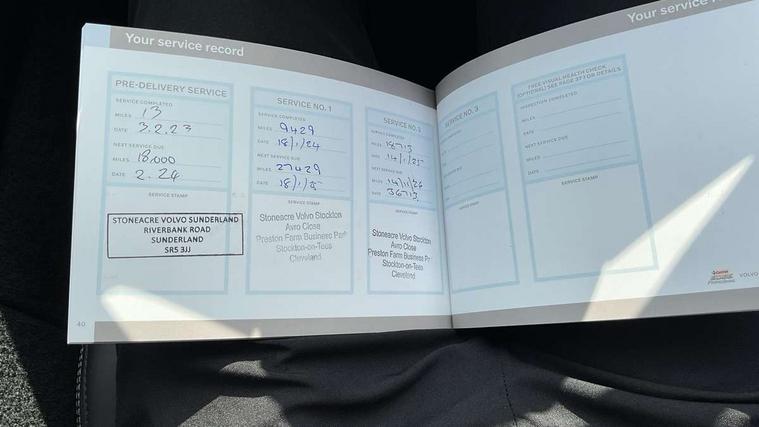 Your service record
PRE-DELIVERY SERVICE
SERVICE COMPLETED
MILES 13
DATE 3.2.23
NEXT SERVICE DUE
MILES 18,000
DATE 2.24
SERVICE STAMP
STONEACRE VOLVO SUNDERLAND
RIVERBANK ROAD
SUNDERLAND
SR5 3JJ
40
SERVICE NO. 1
SERVICE COMPLETED
MILES 9429
DATE 18/1/24
NEXT SERVICE DUE
MILES 27429
DATE 18/1/
SERVICE STAMP
Stoneacre Volvo Stockton
Avro Close
Preston Farm Business Park
Stockton-on-Tees
Cleveland
SERVICE NO. 2
SERVICE COMPLETED
MILES 18713
DATE 14/1/25
NEXT SERVICE DUE
MILES 14/1/26
DATE 36713
SERVICE STAMP
Stoneacre Volvo Stockton
Avro Close
Preston Farm Business P
Stockton-on-Tees
Cleveland
SERVICE NO. 3
SERVICE STAMP
Your service
FREE VISUAL HEALTH CHECK
(OPTIONAL) SEE PAGE 37 FOR DETAILS
INSPECTION COMPLETED
MILES
DATE
NEXT SERVICE DUE
MILES
DATE
SERVICE STAMP
Castrol
VOLVO